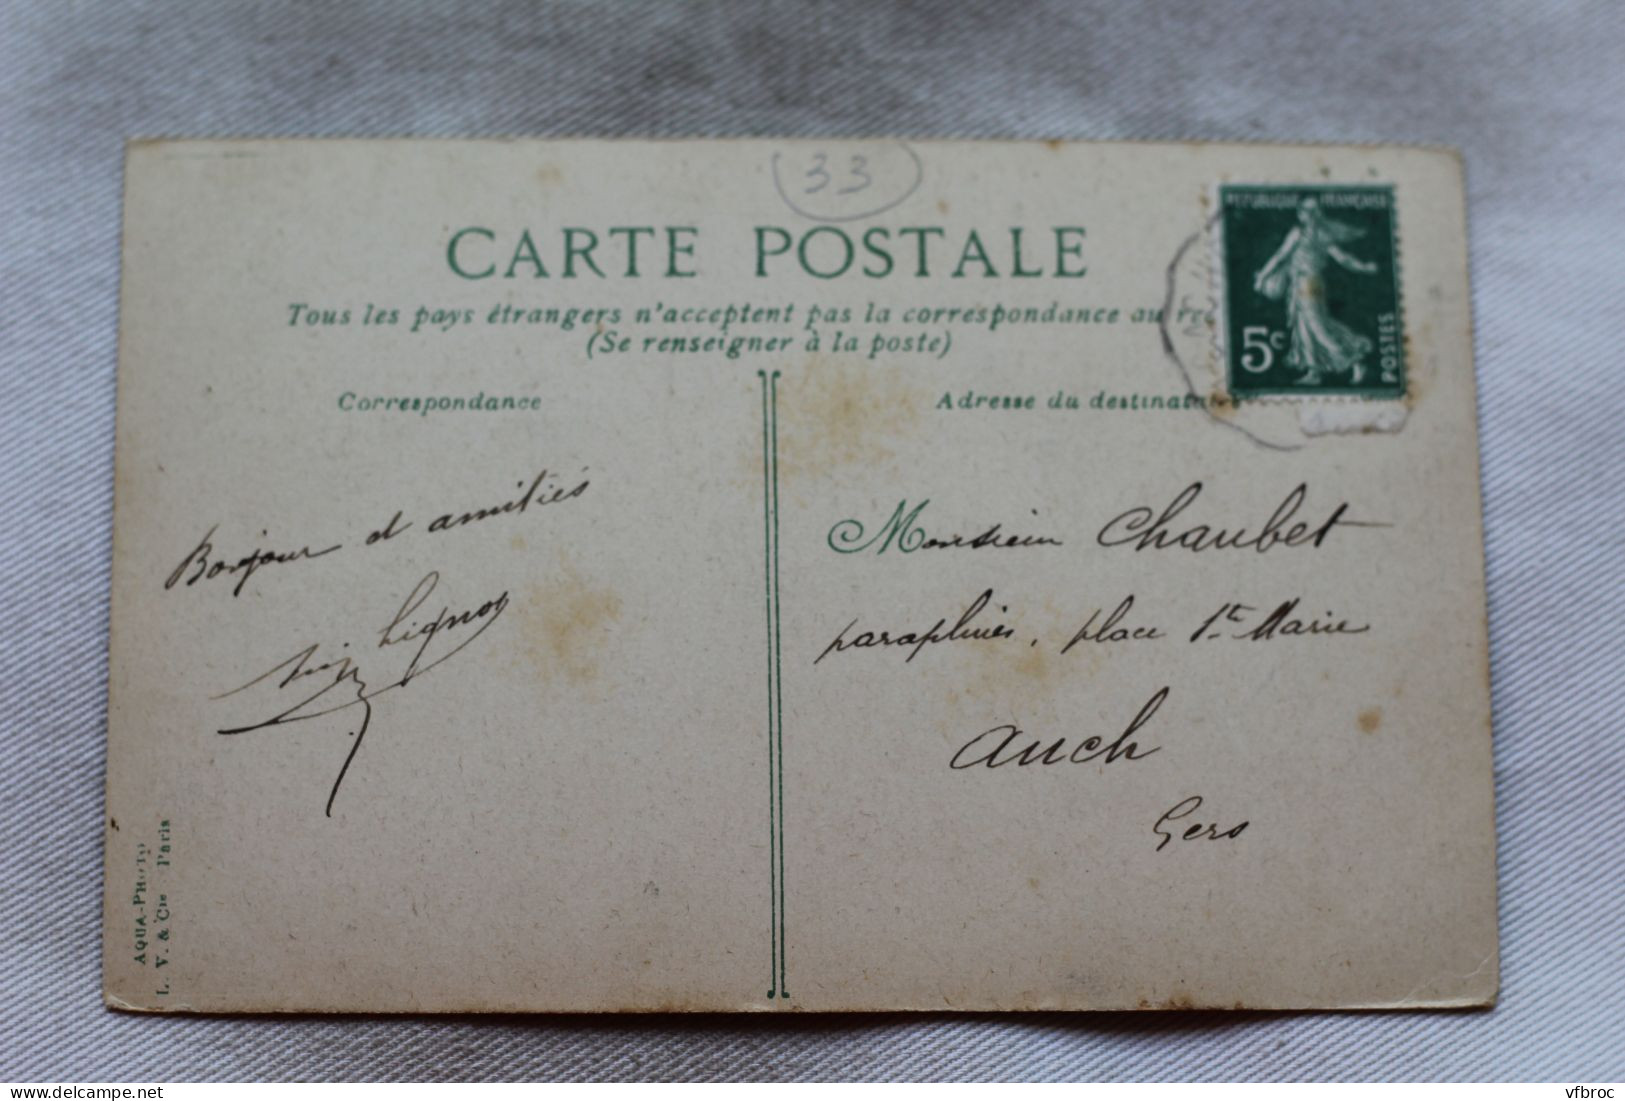 33
CARTE POSTALE
Tous les pays étrangers n'acceptent pas la correspondance au
(Se renseigner à la poste)
Correspondance
Adresse du destinata
REPUBLIQUE FRANÇAISE
5c
POSTES
Bonjour et amitiés
Lignon
Monsieur Chaubet
parapluies, place Ste Marie
Auch
Gers
AQUA-PHOTO
L. V. & Cie Paris
www.delcampe.net
vfbroc